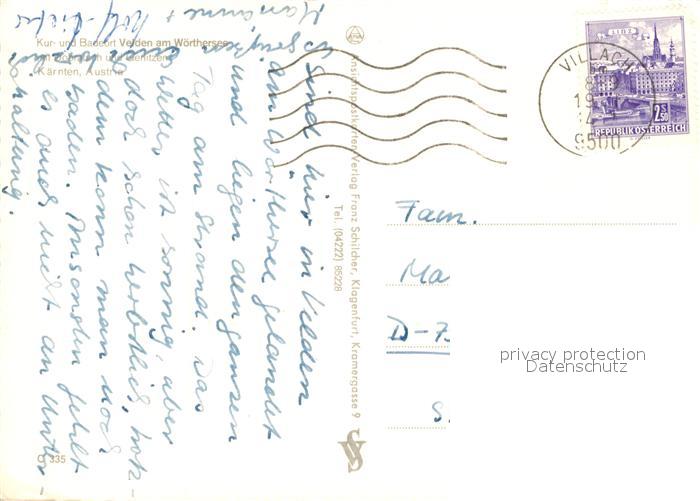 Kur- und Badeort Velden am Wörthersee
Kärnten, Austria
Sind hier in Velden
am Wörthersee gelandet
und liegen den ganzen
Tag am Strand. Das
Wetter ist sonnig, aber
doch schon herbstlich, trotz-
dem kann man noch
baden. Ansonsten fehlt
es auch nicht an Unter-
haltung.
Marianne +
C 335
Ansichtspostkarten-Verlag Franz Schilcher, Klagenfurt, Kramergasse 9
Tel. (04222) 85228
LINZ
2.50
REPUBLIK ÖSTERREICH
VILLACH
9500
Fam.
Ma
D-7
S.
privacy protection
Datenschutz